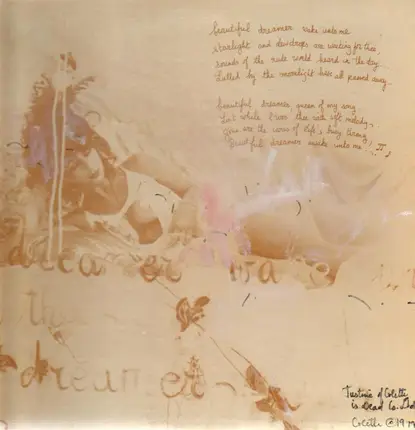 beautiful dreamer wake unto me
starlight and dewdrops are waiting for thee,
sounds of the rude world heard in the day
Lulled by the moonlight have all passed away..
beautiful dreamer, queen of my song
List while I woo thee with soft melody..
gone are the cares of life's busy throng,
beautiful dreamer awake unto me...
dreamer wa
the
dreamer
Justine of Colette
is Dead Co. Ltd
Colette © 19